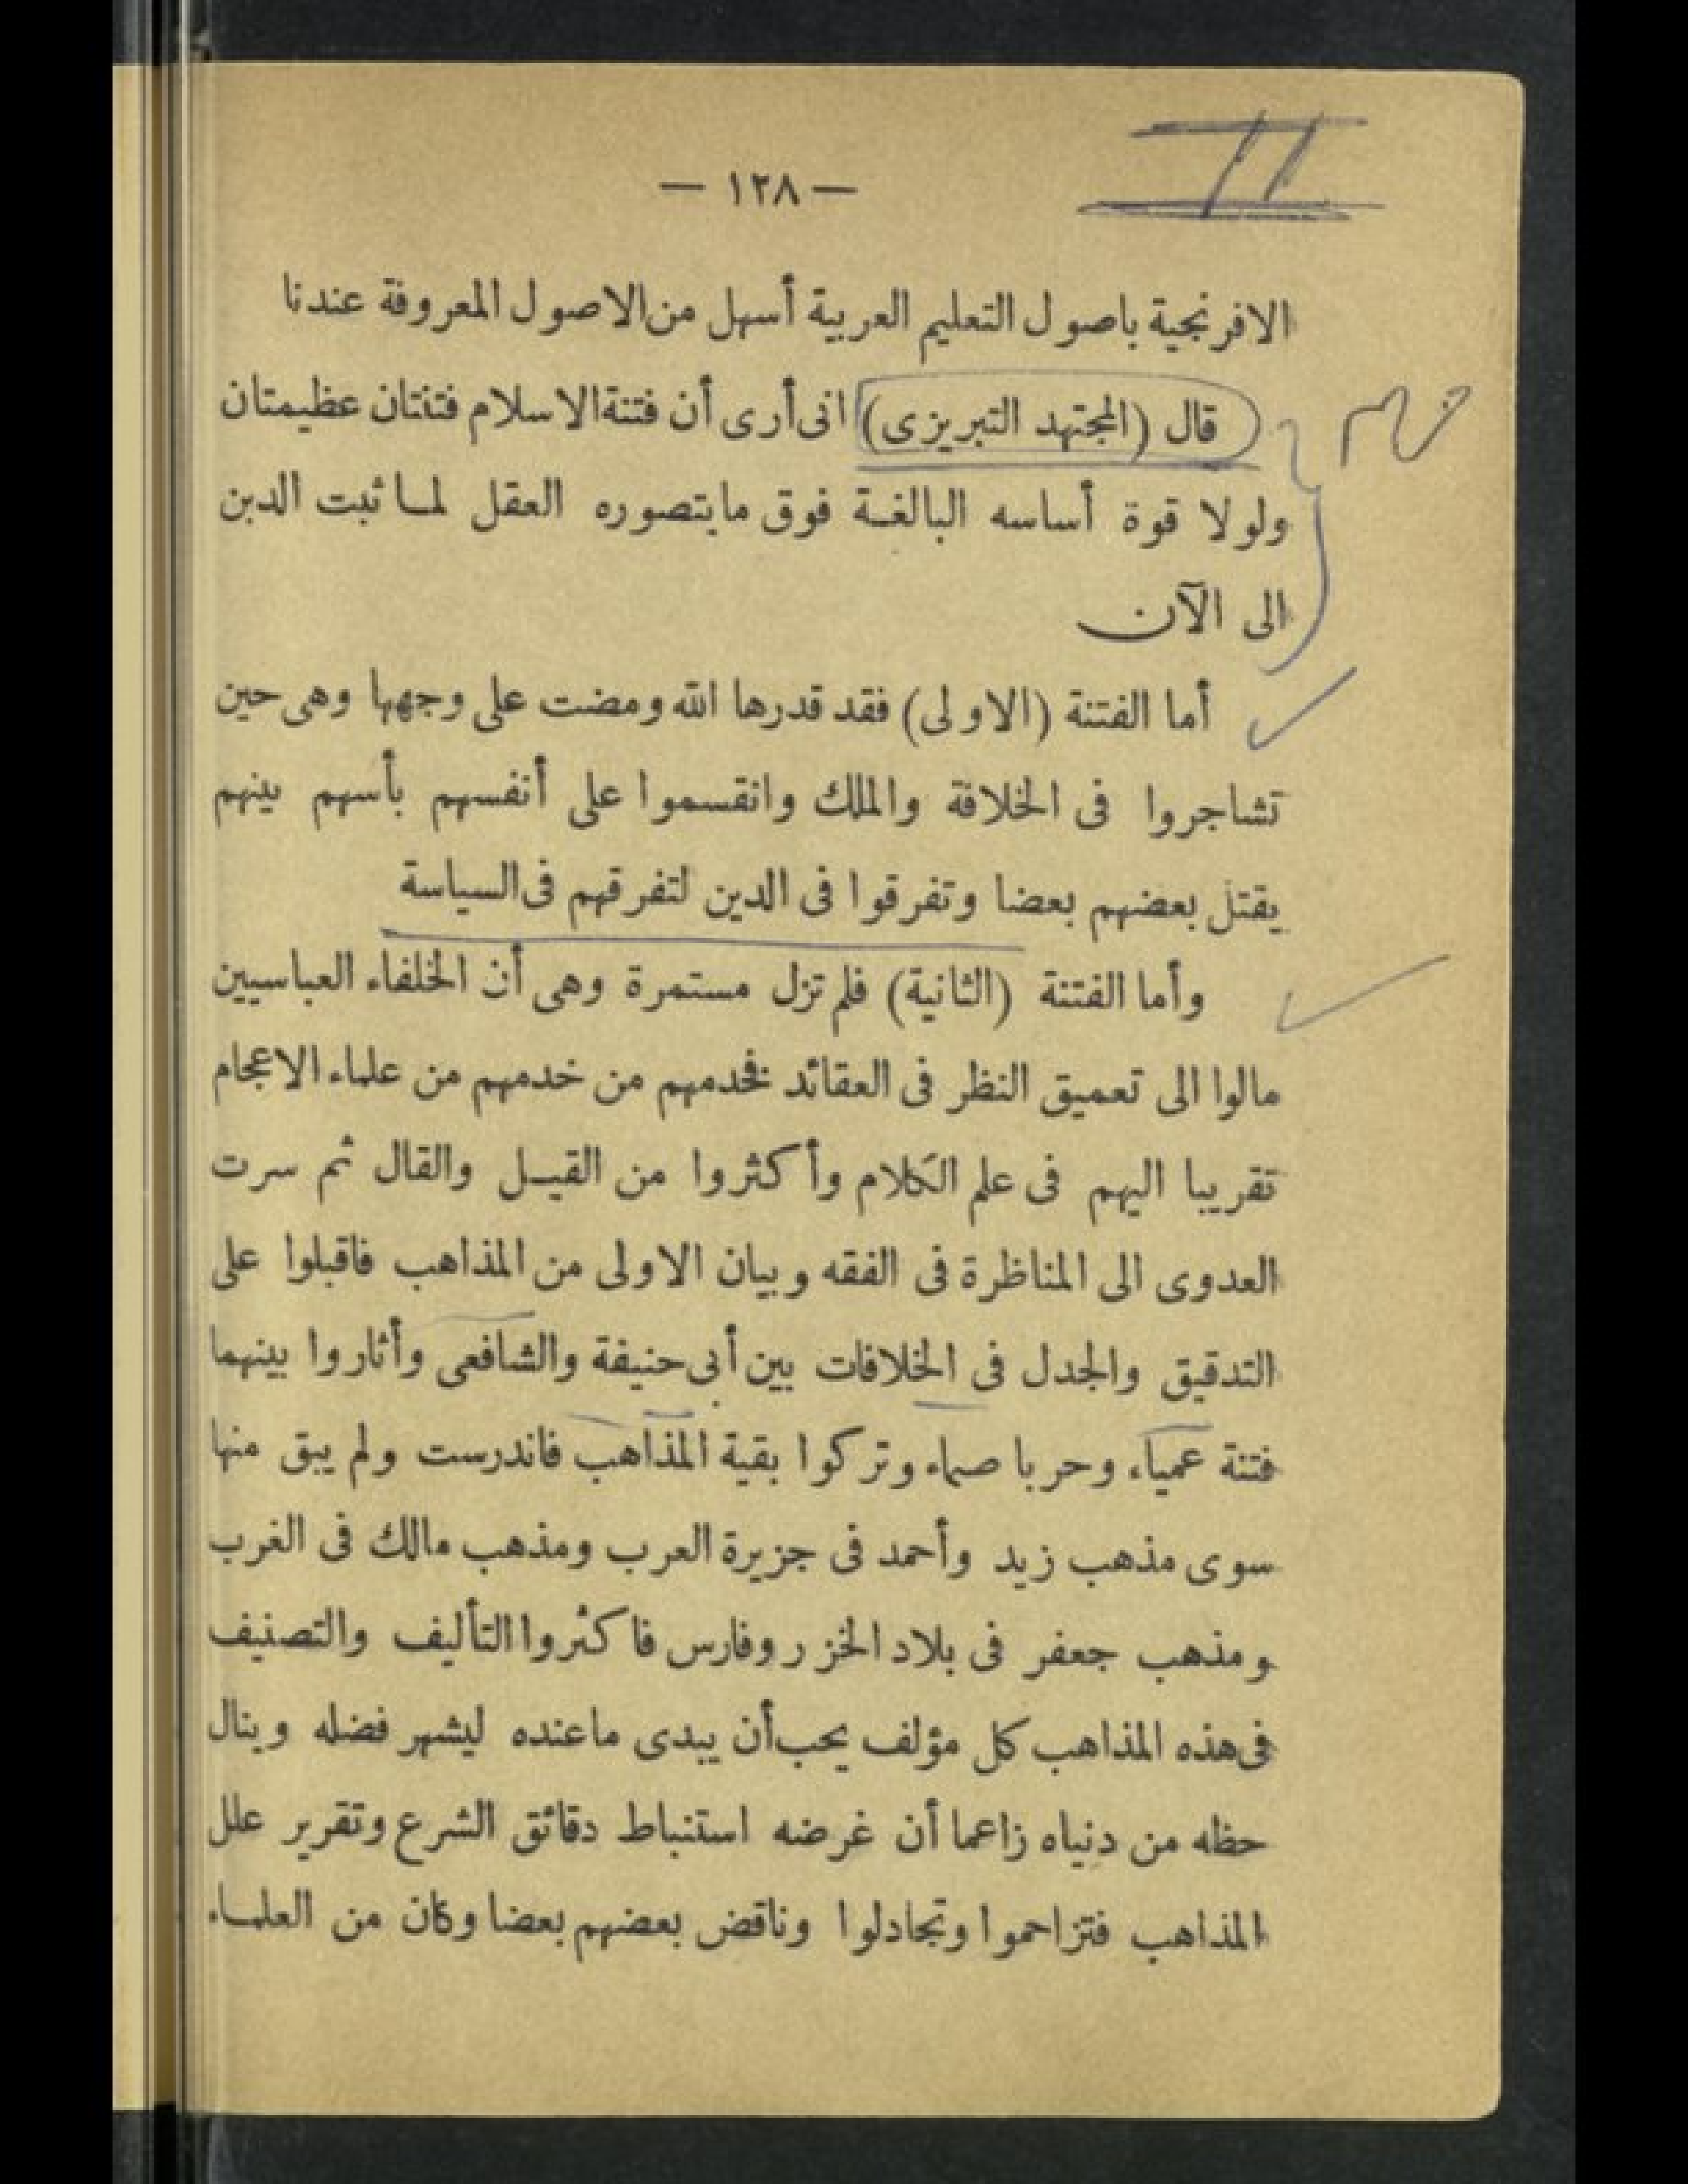 II
— ١٢٨ —
الافرنجية باصول التعليم العربية أسهل من الاصول المعروفة عندنا
قال (المجتهد التبريزى) انى أرى أن فتنة الاسلام فتنتان عظيمتان
ولولا قوة أساسه البالغة فوق مايتصوره العقل لما ثبت الدين
الى الآن
أما الفتنة (الاولى) فقد قدرها الله ومضت على وجهها وهى حين
تشاجروا فى الخلافة والملك وانقسموا على أنفسهم بأسهم بينهم
يقتل بعضهم بعضا وتفرقوا فى الدين لتفرقهم فى السياسة
وأما الفتنة (الثانية) فلم تزل مستمرة وهى أن الخلفاء العباسيين
مالوا الى تعميق النظر فى العقائد فخدمهم من خدمهم من علماء الاعجام
تقريبا اليهم فى علم الكلام وأكثروا من القيل والقال ثم سرت
العدوى الى المناظرة فى الفقه وبيان الاولى من المذاهب فاقبلوا على
التدقيق والجدل فى الخلافات بين أبى حنيفة والشافعى وأثاروا بينهما
فتنة عمياء وحربا صماء وتركوا بقية المذاهب فاندرست ولم يبق منها
سوى مذهب زيد وأحمد فى جزيرة العرب ومذهب مالك فى الغرب
ومذهب جعفر فى بلاد الخزر وفارس فاكثروا التأليف والتصنيف
فى هذه المذاهب كل مؤلف يحب أن يبدى ماعنده ليشهر فضله وينال
حظه من دنياه زاعما أن غرضه استنباط دقائق الشرع وتقرير علل
المذاهب فتزاحموا وتجادلوا وناقض بعضهم بعضا وكان من العلماء